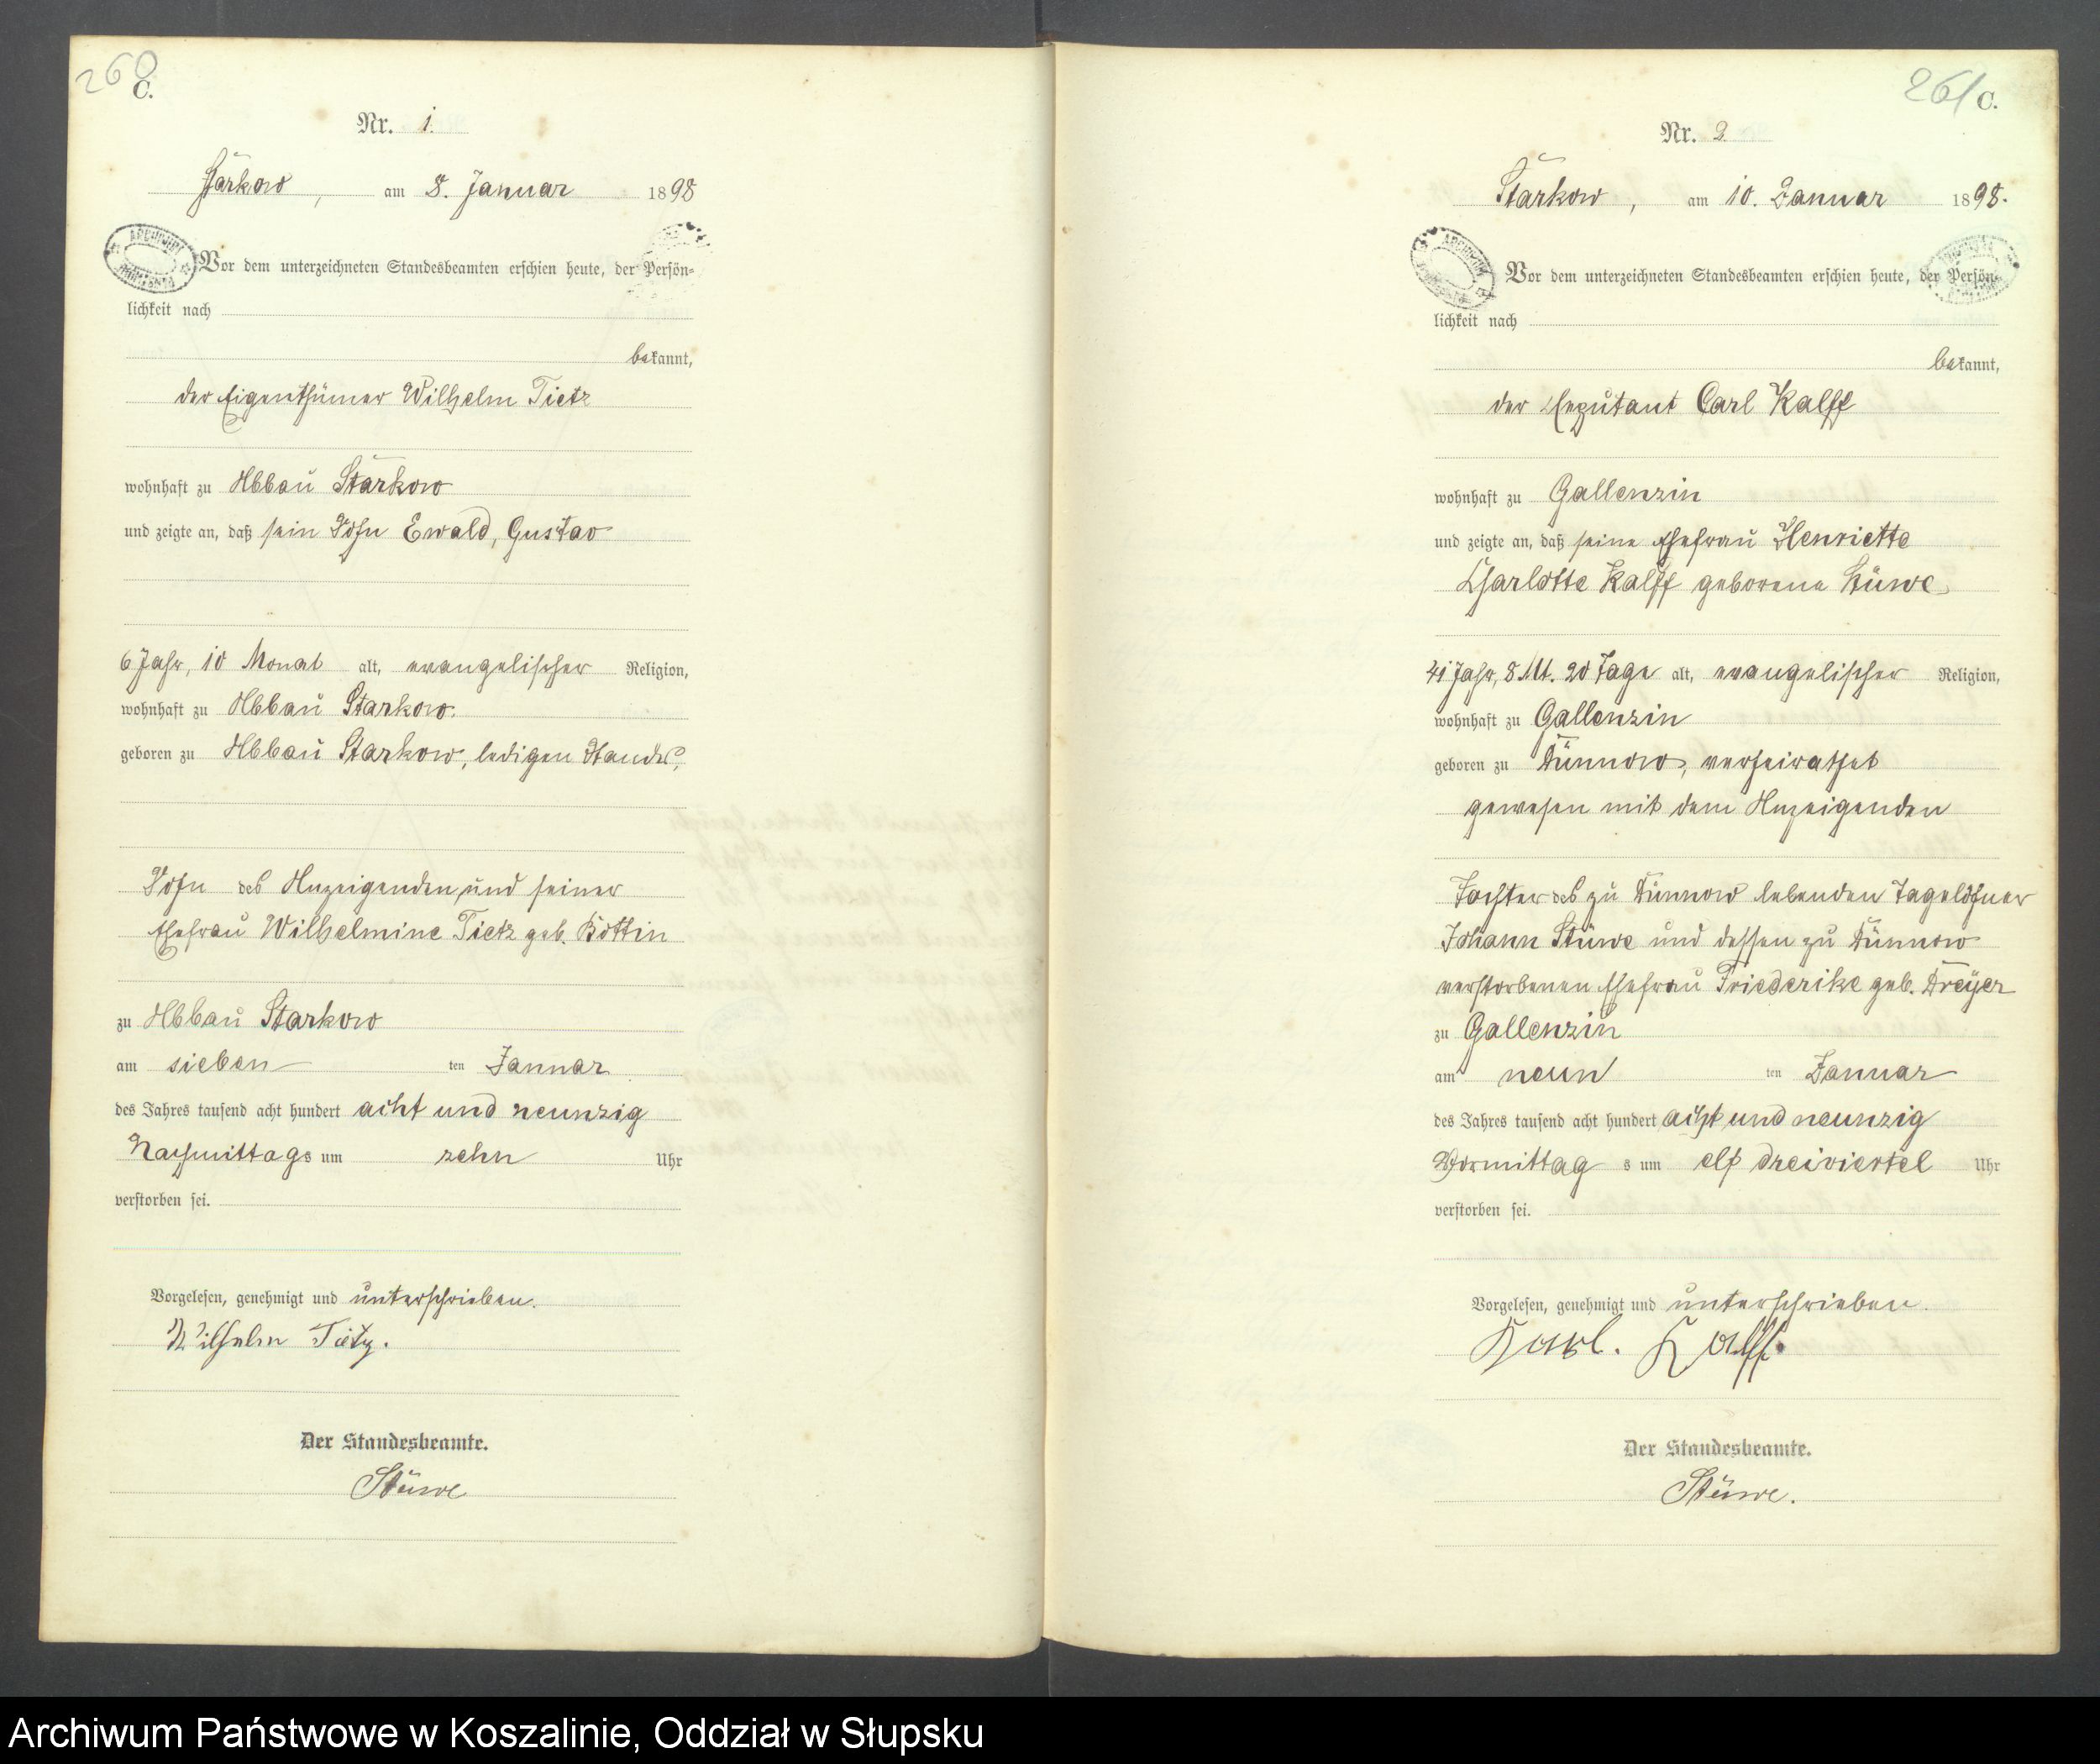 260
C.
Nr. 1.
Starkow, am 8. Januar 1898
Vor dem unterzeichneten Standesbeamten erschien heute, der Persön-
lichkeit nach
bekannt,
der Eigenthümer Wilhelm Tietz
wohnhaft zu Abbau Starkow
und zeigte an, daß sein Sohn Ewald, Gustav
6 Jahr, 10 Monat alt, evangelischer Religion,
wohnhaft zu Abbau Starkow.
geboren zu Abbau Starkow, ledigen Standes,
Sohn des Anzeigenden und seiner
Ehefrau Wilhelmine Tietz geb. Böttin
zu Abbau Starkow
am sieben ten Januar
des Jahres tausend acht hundert acht und neunzig
Nachmittags um zehn Uhr
verstorben sei.
Vorgelesen, genehmigt und unterschrieben.
Wilhelm Tietz.
Der Standesbeamte.
Stüwe
261
C.
Nr. 2
Starkow, am 10. Januar 1898.
Vor dem unterzeichneten Standesbeamten erschien heute, der Persön-
lichkeit nach
bekannt,
der Deputant Carl Kalff
wohnhaft zu Gallenzin
und zeigte an, daß seine Ehefrau Henriette
Charlotte Kalff geborene Stüwe,
41 Jahr, 8 Mt. 20 Tage alt, evangelischer Religion,
wohnhaft zu Gallenzin
geboren zu Dünnow, verheirathet
gewesen mit dem Anzeigenden
Tochter des zu Dünnow lebenden Tagelöhner
Johann Stüwe und dessen zu Dünnow
verstorbenen Ehefrau Friederike geb. Dreyer
zu Gallenzin
am neun ten Januar
des Jahres tausend acht hundert acht und neunzig
Vormittag s um elf dreiviertel Uhr
verstorben sei.
Vorgelesen, genehmigt und unterschrieben.
Karl. Kalff.
Der Standesbeamte.
Stüwe.
Archiwum Państwowe w Koszalinie, Oddział w Słupsku